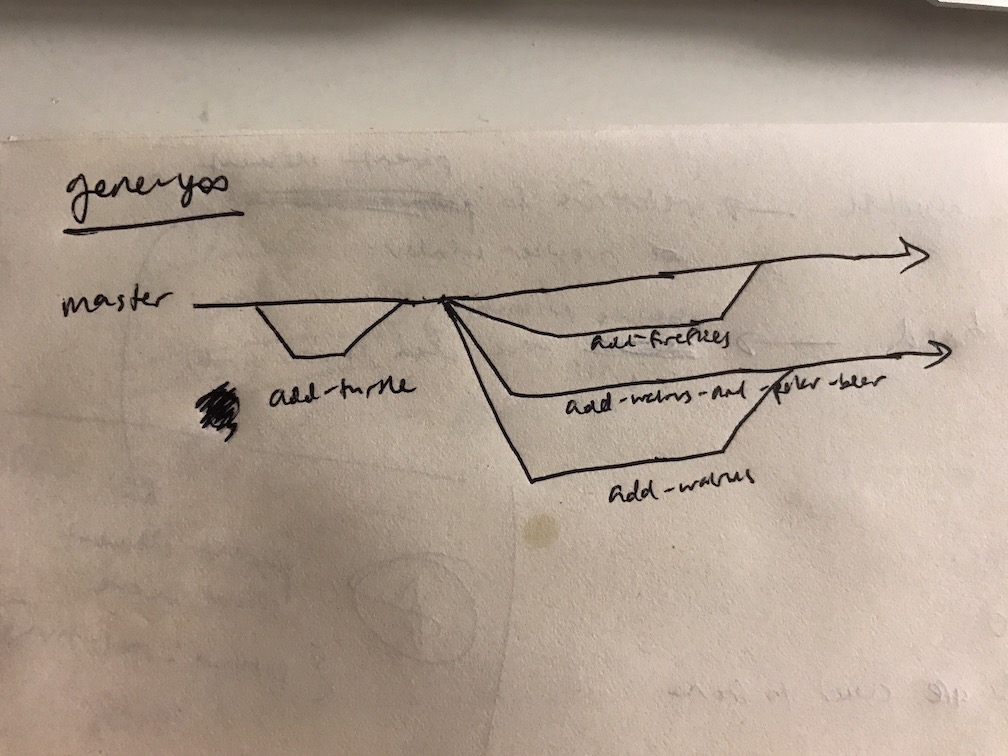 master
add-turtle
add-fireflies
add-walrus-and-polar-bear
add-walrus